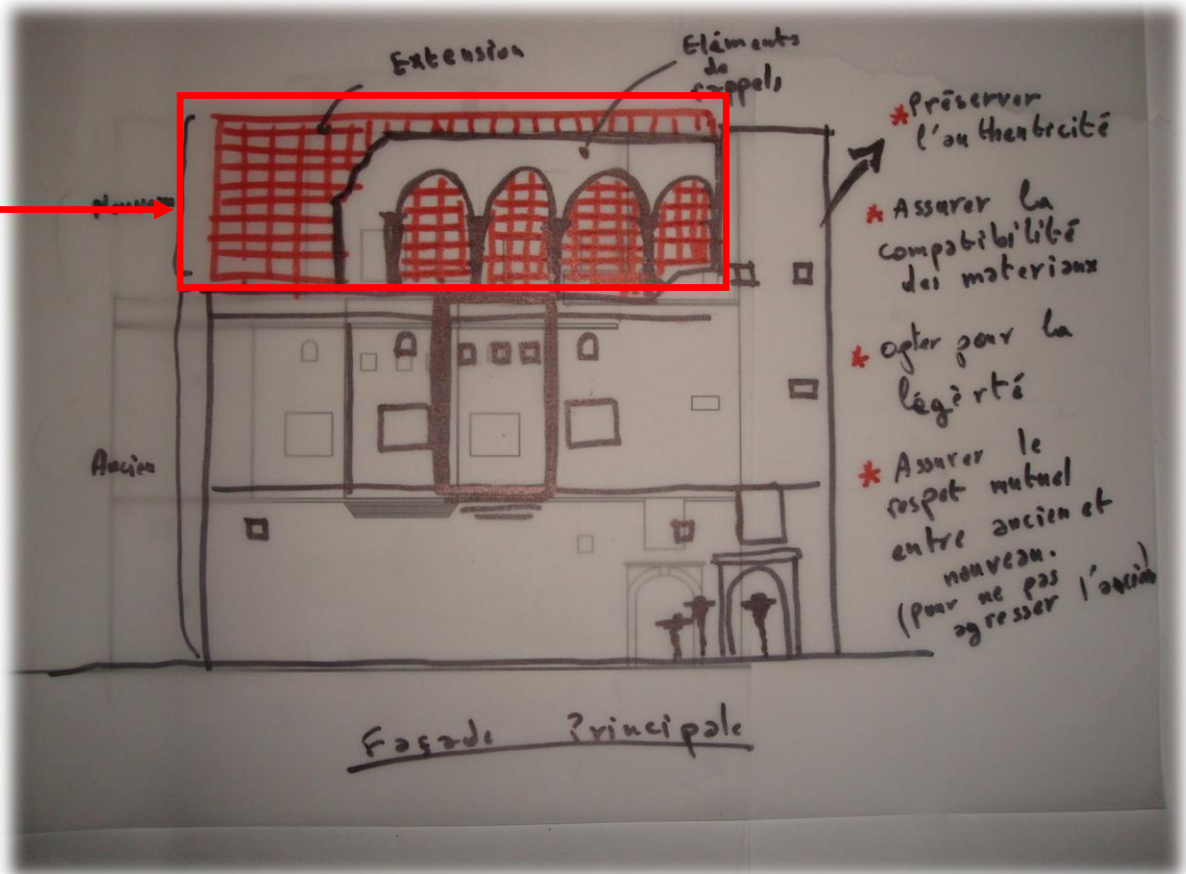 Extension
Eléments
de
rappels
Nouveau
Ancien
* Préserver
l'authenticité
* Assurer la
compatibilité
des materiaux
* opter pour la
légèrté
* Assurer le
respet mutuel
entre ancien et
nouveau.
(pour ne pas
agresser l'ancien)
Façade Principale